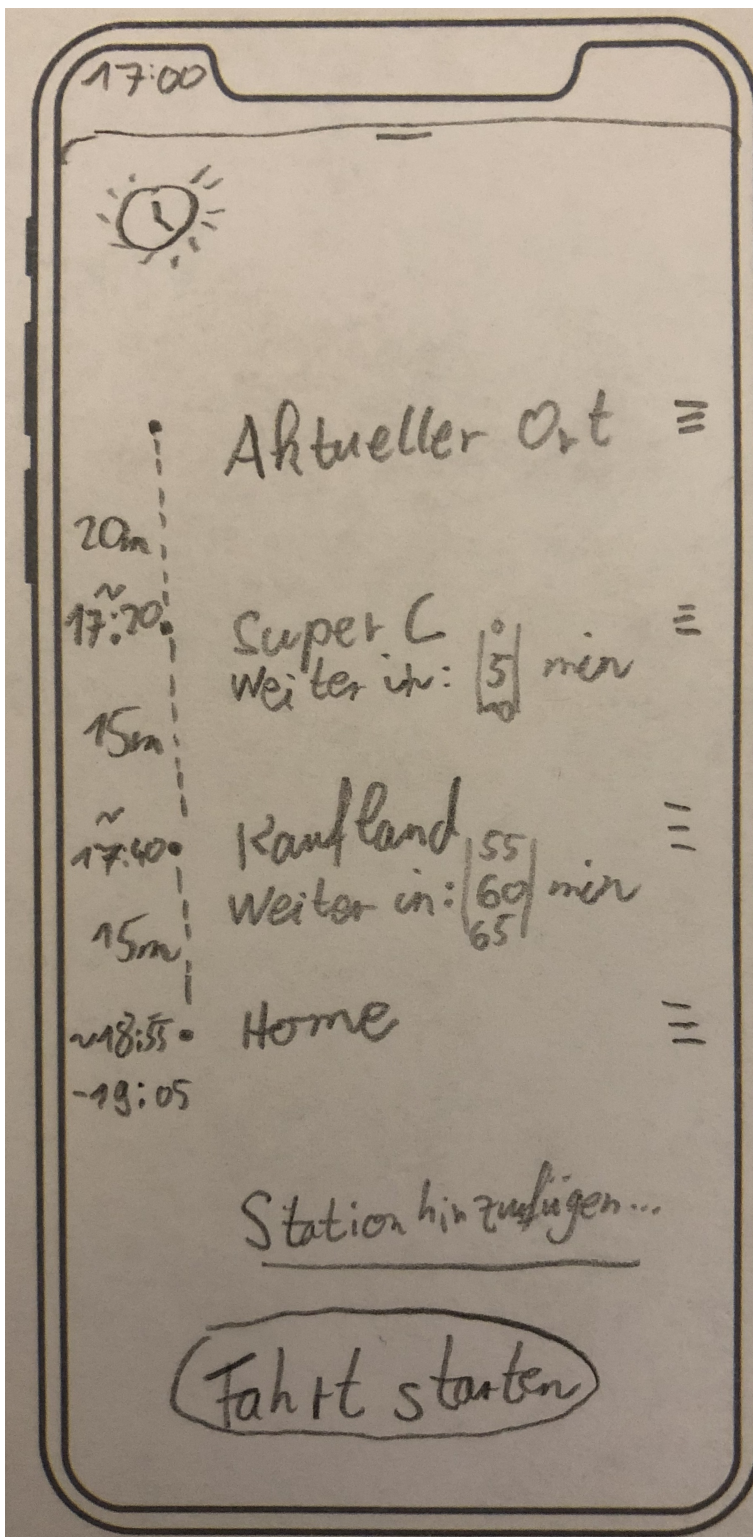 17:00
Aktueller Ort
20m
~
17:20
Super C
0
Weiter in: 5 min
10
15m
~
17:40
Kaufland
55
Weiter in: 60 min
65
15m
~18:55
Home
-19:05
Station hinzufügen...
Fahrt starten